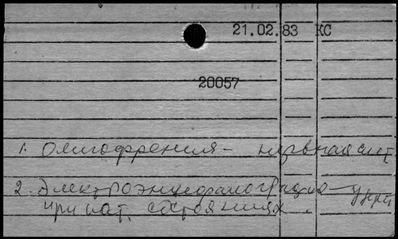 21.02.83 КС
20057
1. Олигофрения -
2. Электроэнцефалография -
при пат. состояниях.